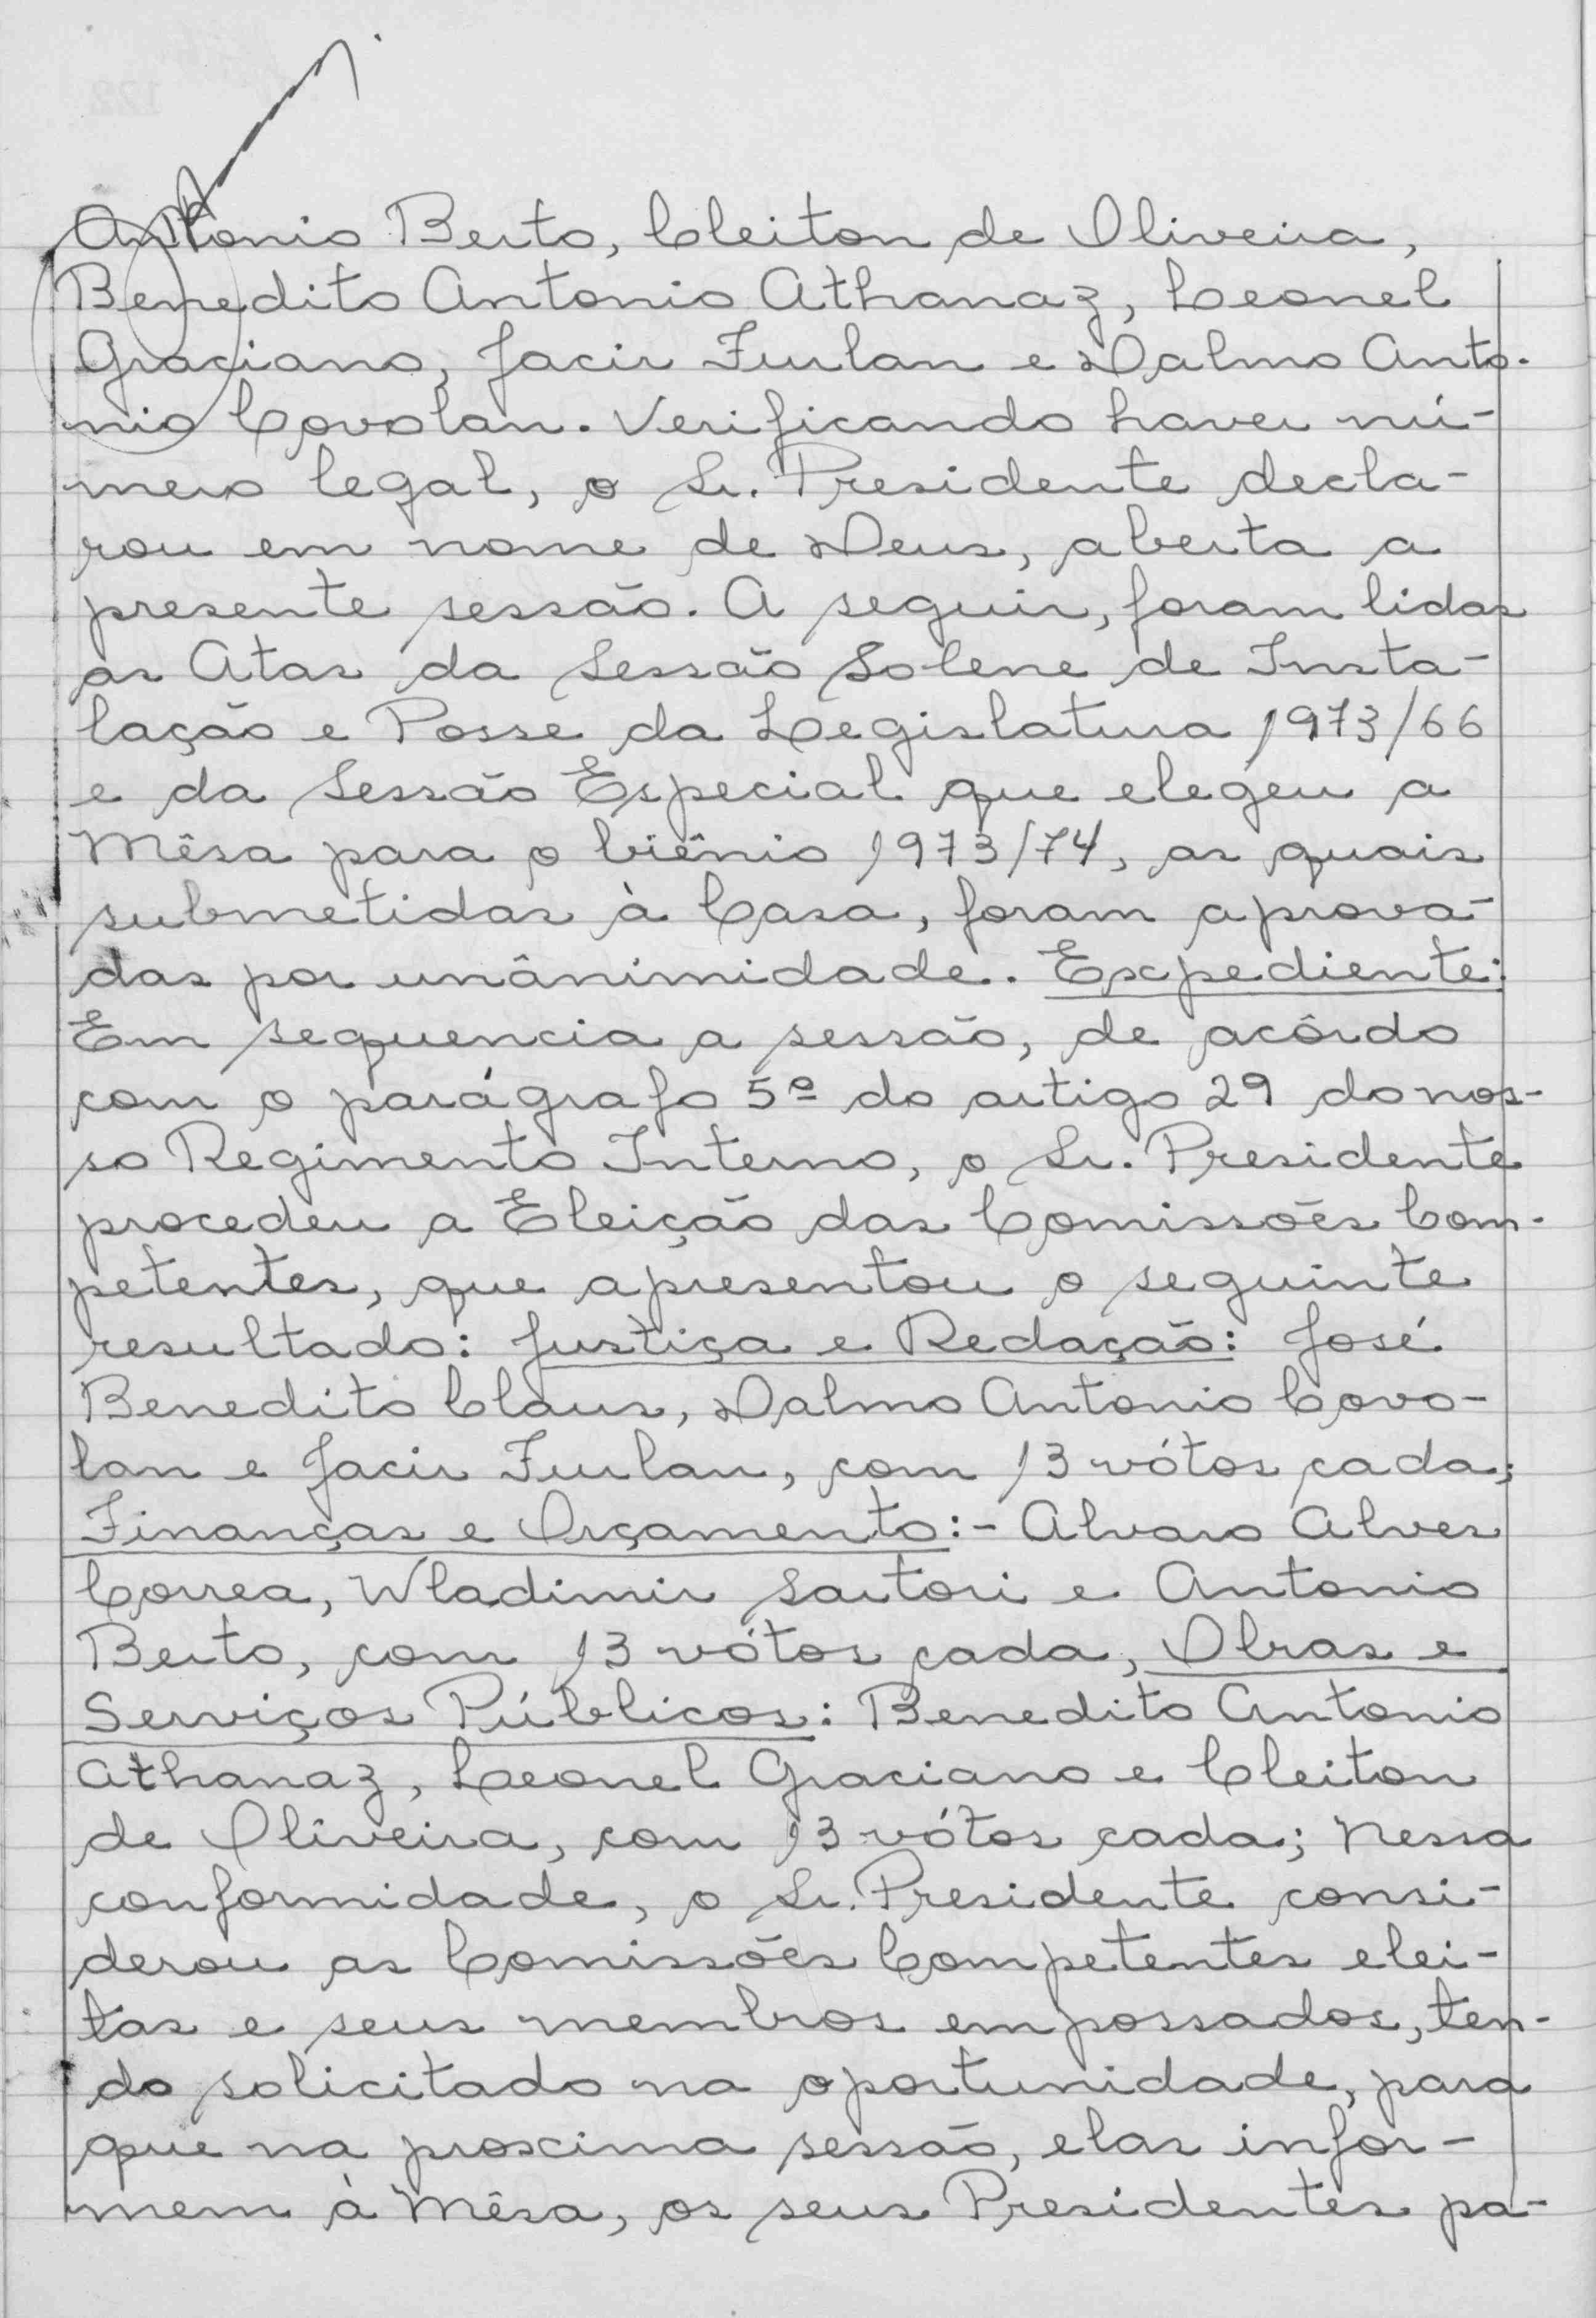 Antonio Berto, Cleiton de Oliveira,
Benedito Antonio Athanaz, Leonel
Graciano, Jacir Furlan e Dalmo Anto-
nio Covolan. Verificando haver nú-
mero legal, o Sr. Presidente decla-
rou em nome de Deus, aberta a
presente sessão. A seguir, foram lidas
as Atas da Sessão Solene de Insta-
lação e Posse da Legislatura 1973/66
e da Sessão Especial que elegeu a
Mêsa para o biênio 1973/74, as quais
submetidas à Casa, foram aprova-
das por unânimidade. Expediente:
Em sequencia a sessão, de acôrdo
com o parágrafo 5º do artigo 29 do nos-
so Regimento Interno, o Sr. Presidente
procedeu a Eleição das Comissões Com-
petentes, que apresentou o seguinte
resultado: Justiça e Redação: José
Benedito Claus, Dalmo Antonio Covo-
lan e Jacir Furlan, com 13 vótos cada;
Finanças e Orçamento:- Alvaro Alves
Correa, Wladimir Sartori e Antonio
Berto, com 13 vótos cada, Obras e
Serviços Públicos: Benedito Antonio
Athanaz, Leonel Graciano e Cleiton
de Oliveira, com 13 vótos cada; Nessa
conformidade, o Sr. Presidente consi-
derou as Comissões Competentes elei-
tas e seus membros empossados, ten-
do solicitado na oportunidade, para
que na proxima sessão, elas infor-
mem à Mêsa, os seus Presidentes pa-